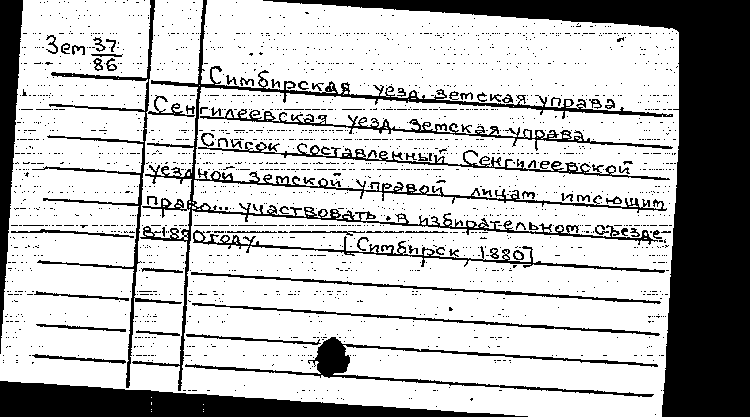 Зем 37/86
Симбирская уезд. земская управа.
Сенгилеевская уезд. земская управа.
Список, составленный Сенгилеевской
уездной земской управой, лицам, имеющим
право... участвовать в избирательном съезде
в 1880 году. [Симбирск, 1880].